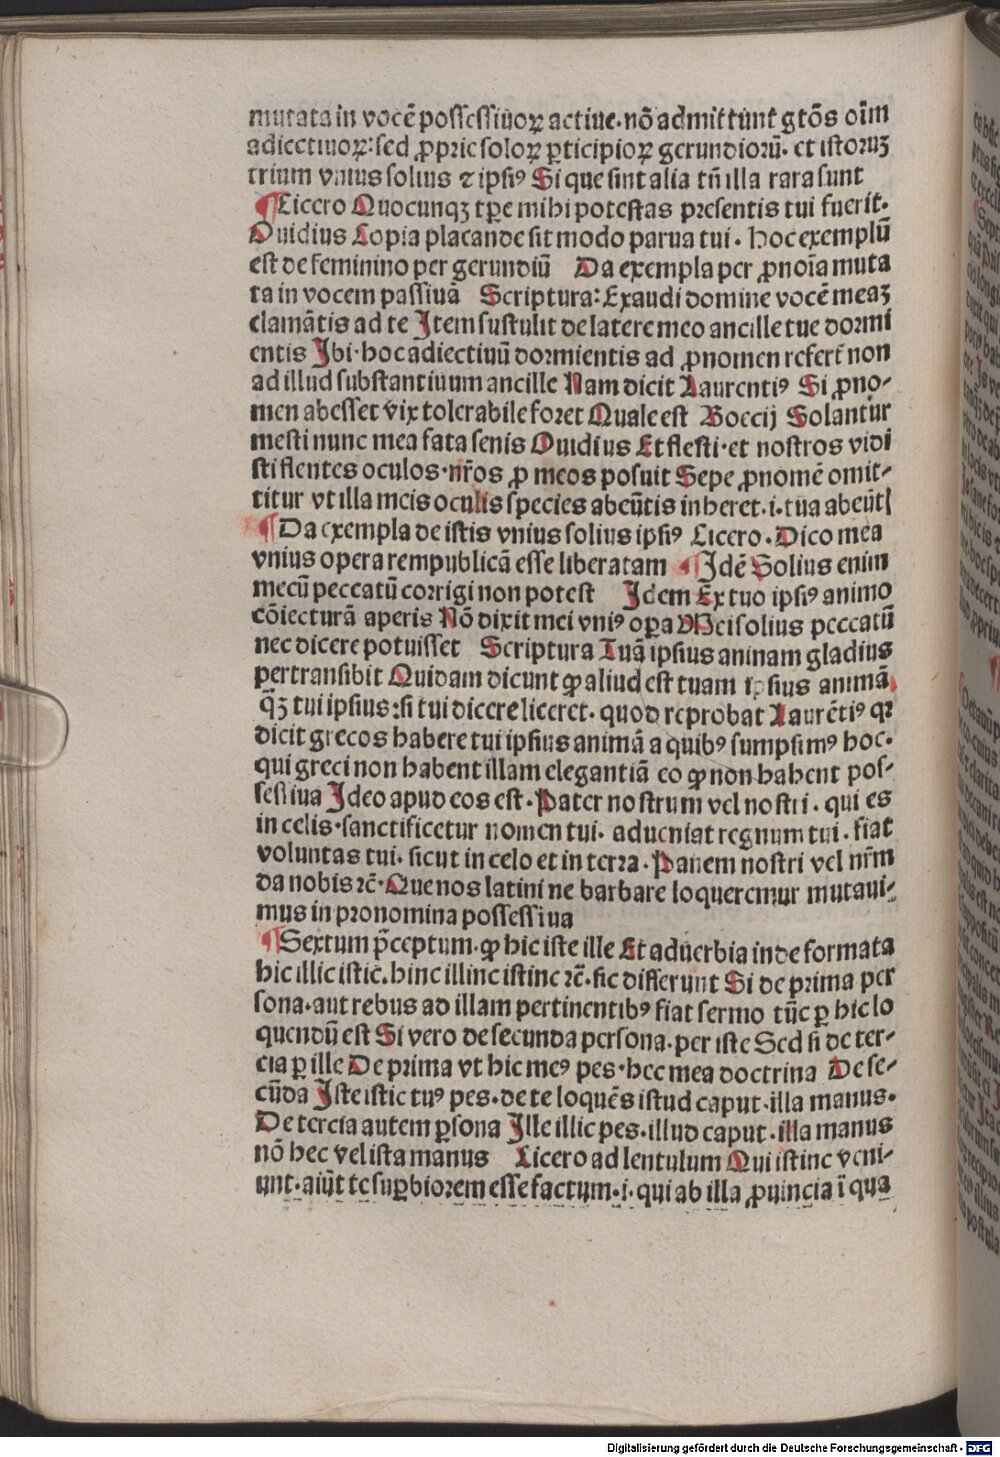 mutata in vocē possessiuoꝝ actiue·nō admittūnt gtōs oīm
adiectiuoꝝ:sed ꝓprie soloꝝ ꝑticipioꝝ gerundiorū· et istoruꝫ
trium vnius solius ⁊ ipsiꝰ Si que sint alia tn̄ illa rara sunt
¶Cicero Quocunqꝫ tꝑe mihi potestas presentis tui fuerit·
Ouidius Copia placande sit modo parua tui· hoc exemplū
est de feminino per gerundiū Da exempla per ꝓnoīa muta
ta in vocem passiuā Scriptura: Exaudi domine vocē meaꝫ
clamātis ad te Item sustulit de latere meo ancille tue dormi
entis Ibi·hoc adiectiuū dormientis ad ꝓnomen refert̄ non
ad illud substantiuum ancille Nam dicit Laurentiꝰ Si ꝓno⸗
men abesset vix tolerabile foret Quale est Boecij Solantur
mesti nunc mea fata senis Ouidius Et flesti·et nostros vidi
sti flentes oculos·nr̄os ꝓ meos posuit Sepe ꝓnomē omit⸗
titur vt illa meis oculis species abeūtis inheret.i.tua abeūtꝭ
¶Da exempla de istis vnius solius ipsiꝰ Cicero·Dico mea
vnius opera rempublicā esse liberatam ¶Idē Solius enim
mecū peccatū corrigi non potest Idem Ex tuo ipsiꝰ animo
cōiecturā aperis Nō dixit mei vniꝰ oꝑa Mei solius peccatū
nec dicere potuisset Scriptura Tuā ipsius animam gladius
pertransibit Quidam dicunt ꝙ aliud est tuam ipsius animā
q̄ꝫ tui ipsius:si tui dicere liceret· quod reprobat Laurētiꝰ qꝛ
dicit grecos habere tui ipsius animā a quibꝰ sumpsimꝰ hoc·
qui greci non habent illam elegantiā eo ꝙ non habent pos⸗
sessiua Ideo apud eos est·Pater nostrum vel nostri· qui es
in celis·sanctificetur nomen tui· adueniat regnum tui·fiat
voluntas tui· sicut in celo et in terra·Panem nostri vel nr̄m
da nobis ⁊c̄·Que nos latini ne barbare loqueremur mutaui⸗
mus in pronomina possessiua
¶Sextum p̄ceptum·ꝙ hic iste ille Et aduerbia inde formata
hic illic istic.hinc illinc istinc ⁊c̄·sic differunt Si de prima per
sona·aut rebus ad illam pertinentibꝰ fiat sermo tūc ꝑ hic lo
quendū est Si vero de secunda persona·per iste Sed si de ter⸗
cia ꝑ ille De prima vt hic meꝰ pes·hec mea doctrina De se⸗
cūda Iste istic tuꝰ pes·de te loquēs istud caput·illa manus·
De tercia autem ꝑsona Ille illic pes·illud caput·illa manus
nō hec vel ista manus Cicero ad lentulum Qui istinc veni⸗
unt·aiūt te suꝑbiorem esse factum·i·qui ab illa ꝓuincia ī qua
Digitalisierung gefördert durch die Deutsche Forschungsgemeinschaft - DFG